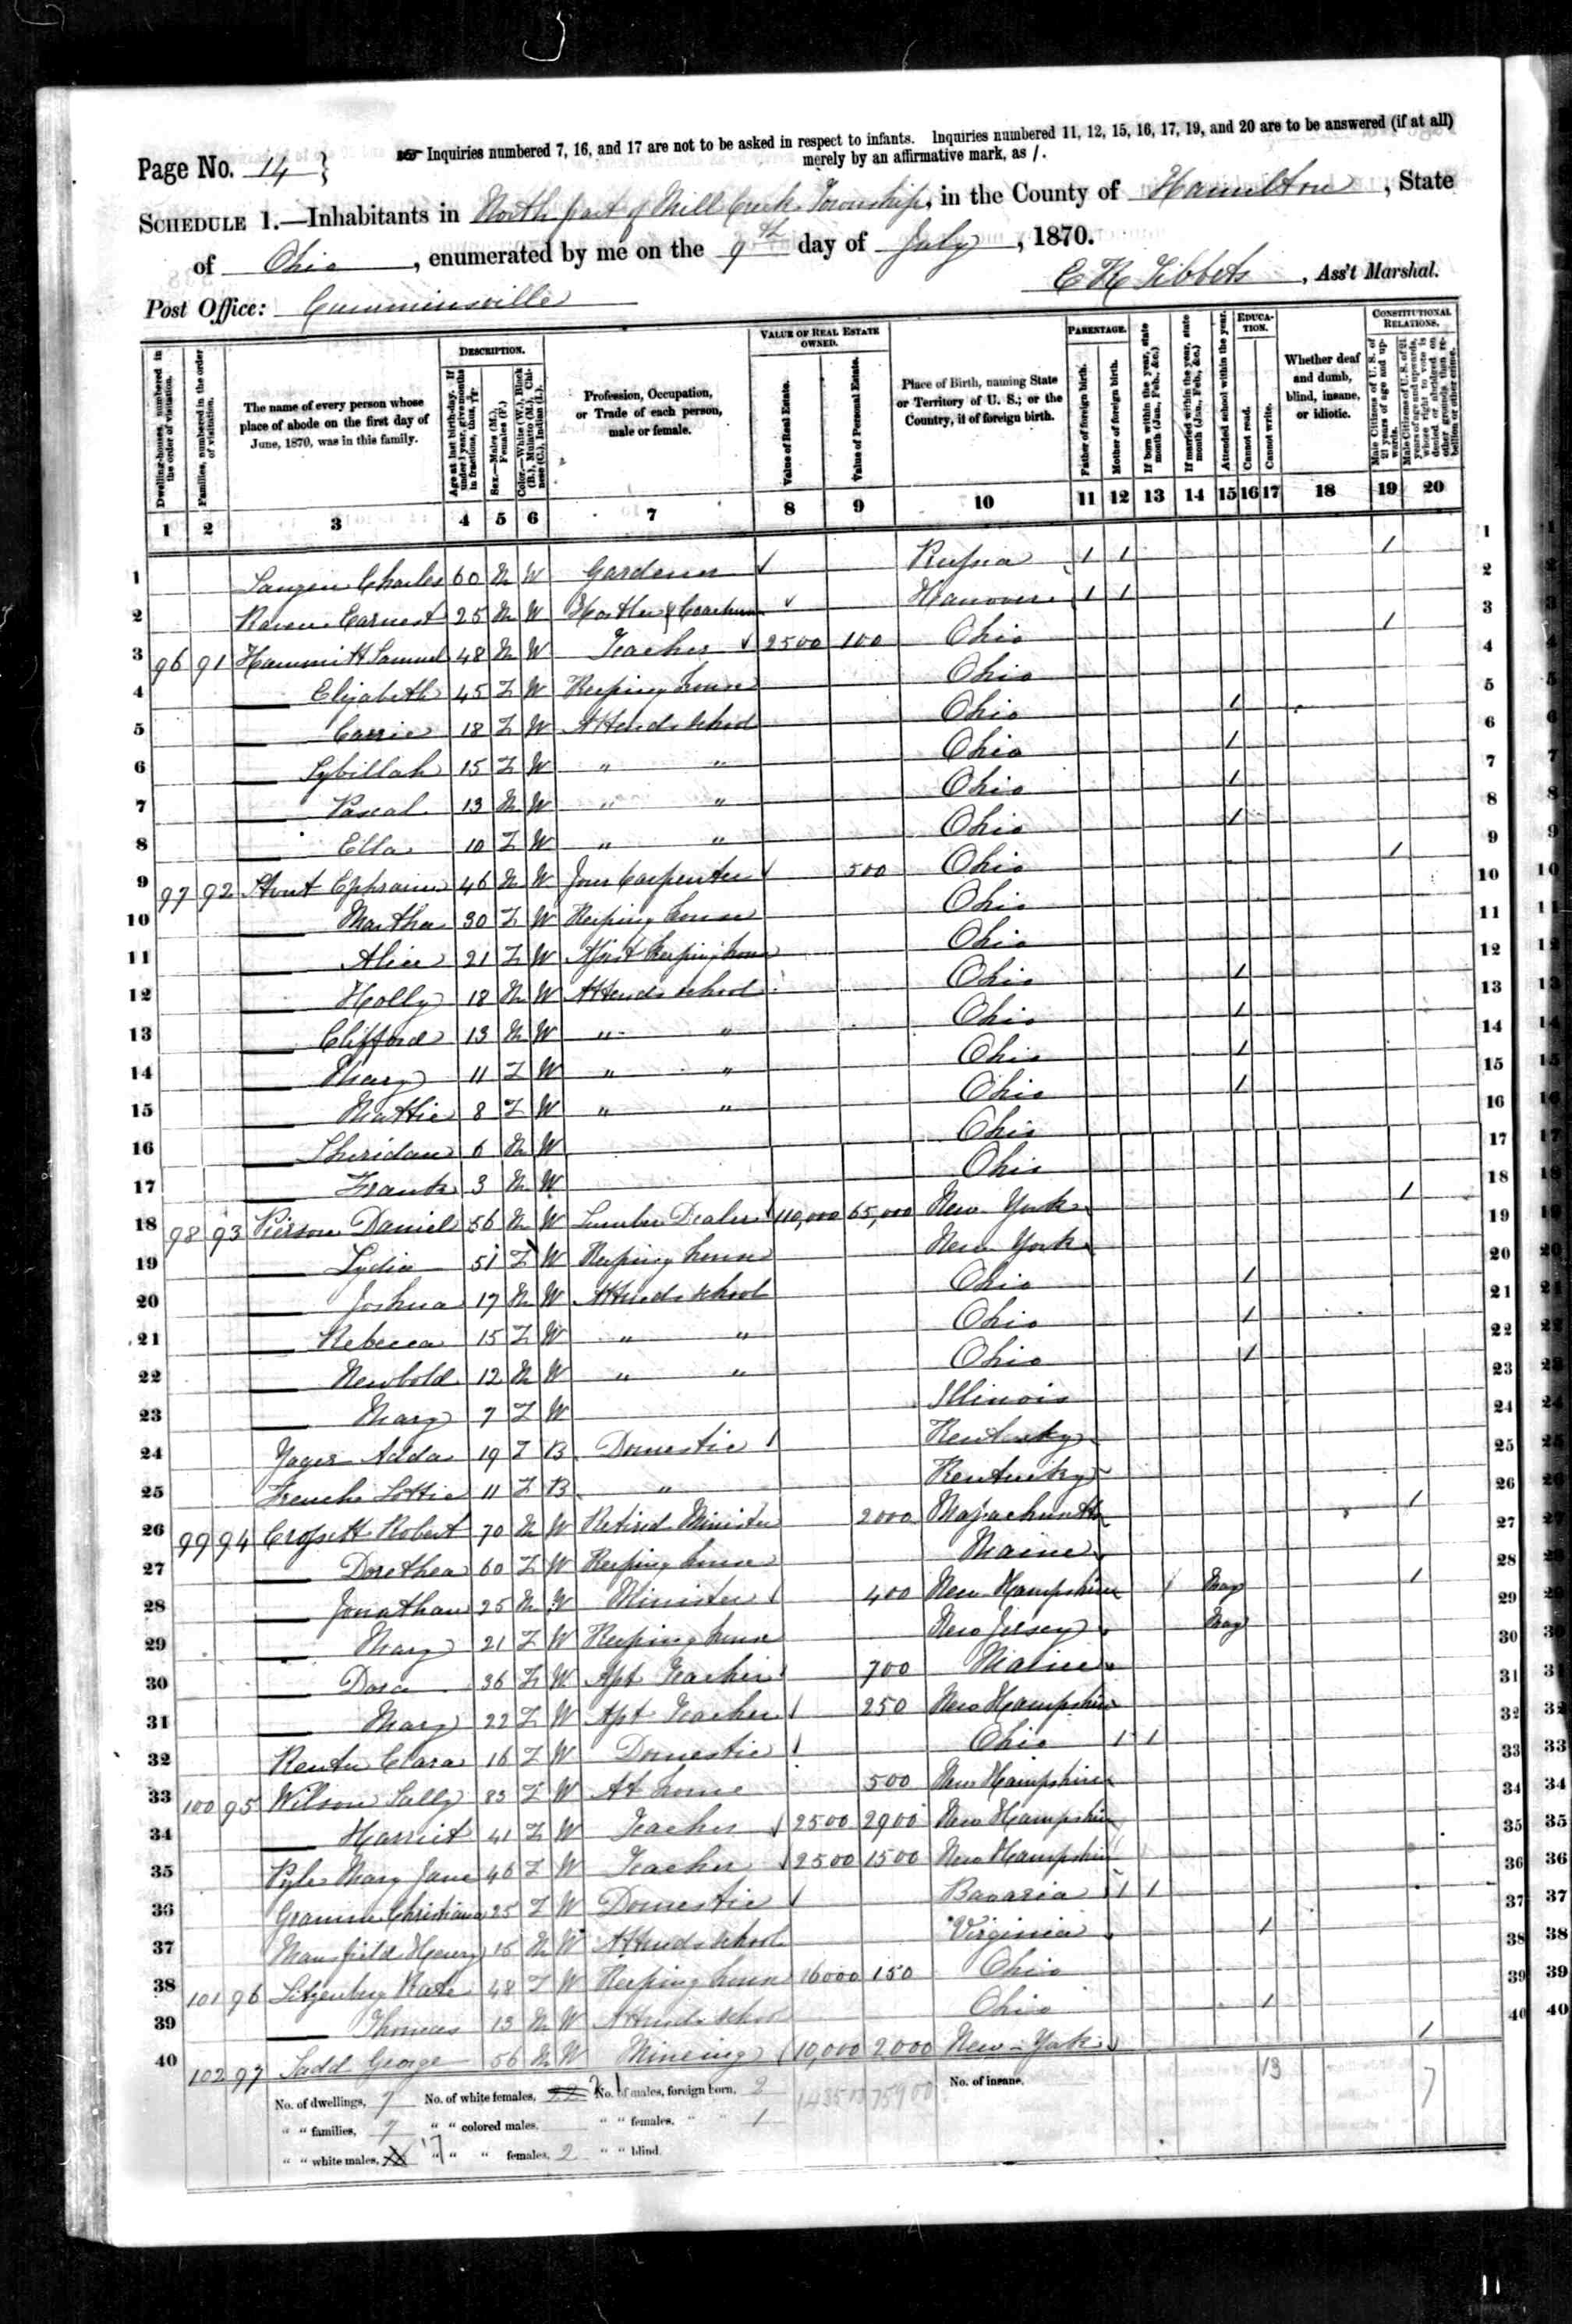 Page No. 14 }
Inquiries numbered 7, 16, and 17 are not to be asked in respect to infants. Inquiries numbered 11, 12, 15, 16, 17, 19, and 20 are to be answered (if at all)
merely by an affirmative mark, as /.
SCHEDULE 1.—Inhabitants in North part of Mill Creek Township, in the County of Hamilton, State
of Ohio, enumerated by me on the 9th day of July, 1870.
Post Office: Cumminsville
E R Tibbets, Ass't Marshal.
Dwelling-houses, numbered in the order of visitation.
Families, numbered in the order of visitation.
The name of every person whose place of abode on the first day of June, 1870, was in this family.
DESCRIPTION.
Age at last birth-day. If under 1 year, give months in fractions, thus, 3/12
Sex.—Males (M.), Females (F.)
Color.—White (W.), Black (B.), Mulatto (M.), Chinese (C.), Indian (I.).
Profession, Occupation, or Trade of each person, male or female.
VALUE OF REAL ESTATE OWNED.
Value of Real Estate.
Value of Personal Estate.
Place of Birth, naming State or Territory of U. S.; or the Country, if of foreign birth.
PARENTAGE.
Father of foreign birth.
Mother of foreign birth.
If born within the year, state month (Jan., Feb., &c.)
If married within the year, state month (Jan., Feb., &c.)
Attended school within the year.
EDUCATION.
Cannot read.
Cannot write.
Whether deaf and dumb, blind, insane, or idiotic.
CONSTITUTIONAL RELATIONS.
Male Citizens of U. S. of 21 years of age and upwards.
Male Citizens of U. S. of 21 years of age and upwards, whose right to vote is denied or abridged on other grounds than rebellion or other crime.
1 2 3 4 5 6 7 8 9 10 11 12 13 14 15 16 17 18 19 20
1 Charles 60 M W Gardener Russia / / / 1
2 Earnest 25 M W Hostler & Coachman Hanover / / 2
3 96 91 Hammitt Samuel 48 M W Teacher 2500 100 Ohio / 3
4 — Elizabeth 45 F W Keeping house Ohio 4
5 — Carrie 18 F W Attends school Ohio / 5
6 — Sybillah 15 F W " " Ohio / 6
7 — Pascal 13 M W " " Ohio / 7
8 — Ella 10 F W " " Ohio / 8
9 97 92 Stout Ephraim 46 M W Jour Carpenter 500 Ohio / 9
10 — Martha 30 F W Keeping house Ohio 10
11 — Alice 21 F W Assist Keeping house Ohio 11
12 — Holly 18 M W Attends school Ohio / 12
13 — Clifford 13 M W " " Ohio / 13
14 — Mary 11 F W " " Ohio / 14
15 — Mattie 8 F W " " Ohio / 15
16 — Sheridan 6 M W Ohio 16
17 — Frank 3 M W Ohio 17
18 98 93 Pierson Daniel 56 M W Lumber Dealer 110,000 65,000 New York / 18
19 — Lydia 51 F W Keeping house New York 19
20 — Joshua 17 M W Attends school Ohio / 20
21 — Rebecca 15 F W " " Ohio / 21
22 — Newbold 12 M W " " Ohio / 22
23 — Mary 7 F W Illinois 23
24 Yager Adda 19 F B Domestic Kentucky 24
25 French Lottie 11 F B " Kentucky 25
26 99 94 Crossett Robert 70 M W Retired Minister 2000 Massachusetts / 26
27 — Dorethea 60 F W Keeping house Maine 27
28 — Jonathan 25 M W Minister 400 New Hampshire / May / 28
29 — Mary 21 F W Keeping house New Jersey May 29
30 — Dora 36 F W Asst Teacher 700 Maine 30
31 — Mary 22 F W Asst Teacher 250 New Hampshire 31
32 Clara 16 F W Domestic Ohio / / 32
33 100 95 Wilson Sally 83 F W At home 500 New Hampshire 33
34 — Harriet 41 F W Teacher 2500 2900 New Hampshire 34
35 Pyle Mary Jane 46 F W Teacher 2500 1500 New Hampshire 35
36 Christiana 25 F W Domestic Bavaria / / 36
37 Mansfield Henry 15 M W Attends school Virginia / 37
38 101 96 Litzenberg Kate 48 F W Keeping house 16000 150 Ohio 38
39 — Thomas 13 M W Attends school Ohio / 39
40 102 97 Ladd George 56 M W Mineing 10,000 2000 New-York / 40
No. of dwellings, 7 No. of white females, 22 21 No. of males, foreign born, 2 No. of insane, 13 7
" " families, 7 " " colored males, " " females, " " 1
" " white males, 17 " " " females, 2 " " blind.